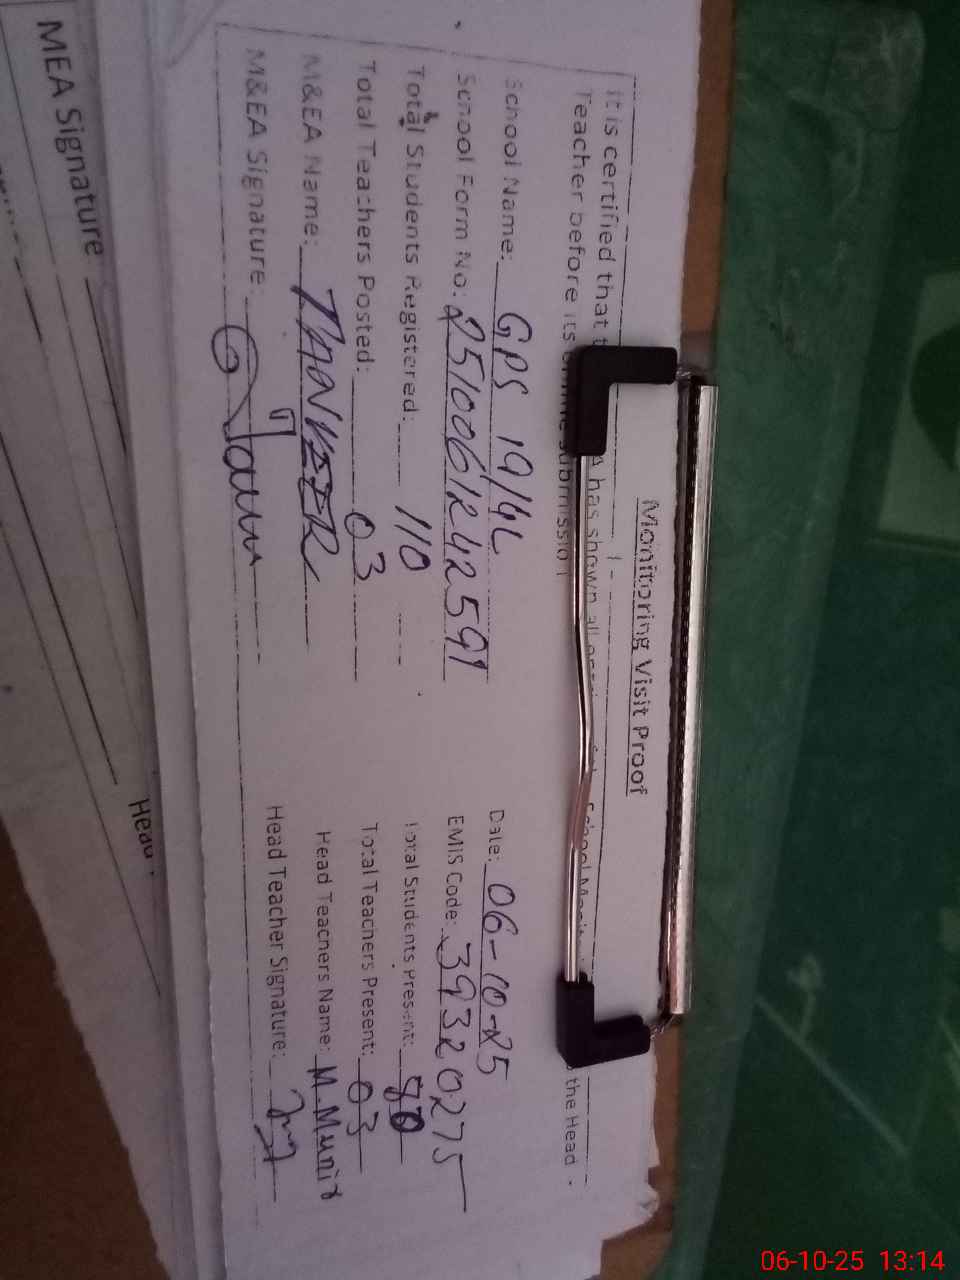 Monitoring Visit Proof
It is certified that has shown all
Teacher before its submission the Head
School Name: GPS 19/4L Date: 06-10-25
School Form No: 251006124 2591 EMIS Code: 39320275
Total Students Registered: 110 Total Students Present: 80
Total Teachers Posted: 03 Total Teachers Present: 03
M&EA Name: TANVEER Head Teachers Name: M. Munir
M&EA Signature: Head Teacher Signature:
MEA Signature Head
06-10-25 13:14